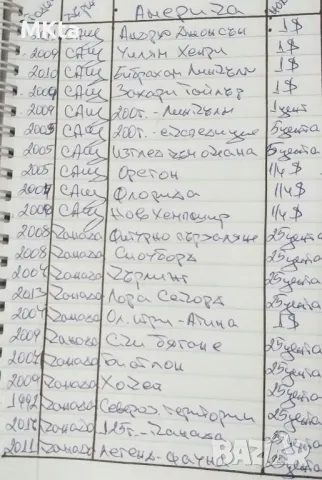 Америка
САЩ Андрю Джонсън 1$
2009 САЩ Уилям Хенри 1$
2010 САЩ Ейбрахам Линкълн 1$
2009 САЩ Закари Тейлър 1$
2009 САЩ 200г. - Линкълн 1 цент
2005 САЩ 200г. - експедиция 5 цента
2005 САЩ изглед към океана 5 цента
2005 САЩ Орегон 1/4$
2004 САЩ Флорида 1/4$
2000 САЩ Нов Хемпшир 1/4$
2008 Канада Фигурно пързаляне 25 цента
2008 Канада Сноуборд 25 цента
2007 Канада Кърлинг 25 цента
2013 Канада Лора Секорд 25 цента
2004 Канада Ол. игри - Атина 1$
2009 Канада Ски бягане 25 цента
2007 Канада Биатлон 25 цента
2009 Канада Хокей 25 цента
1992 Канада Северозап територии 25 цента
Канада 125г. - Канада 25 цента
2011 Канада Легенд. фауна 25 цента
bazar
БАЗАР